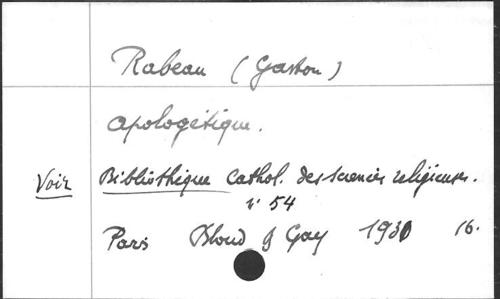 Rabeau (Gaston)
Apologétique.
Voir Bibliothèque Cathol. des sciences religieuses.
n° 54
Paris Bloud & Gay 1930 16.